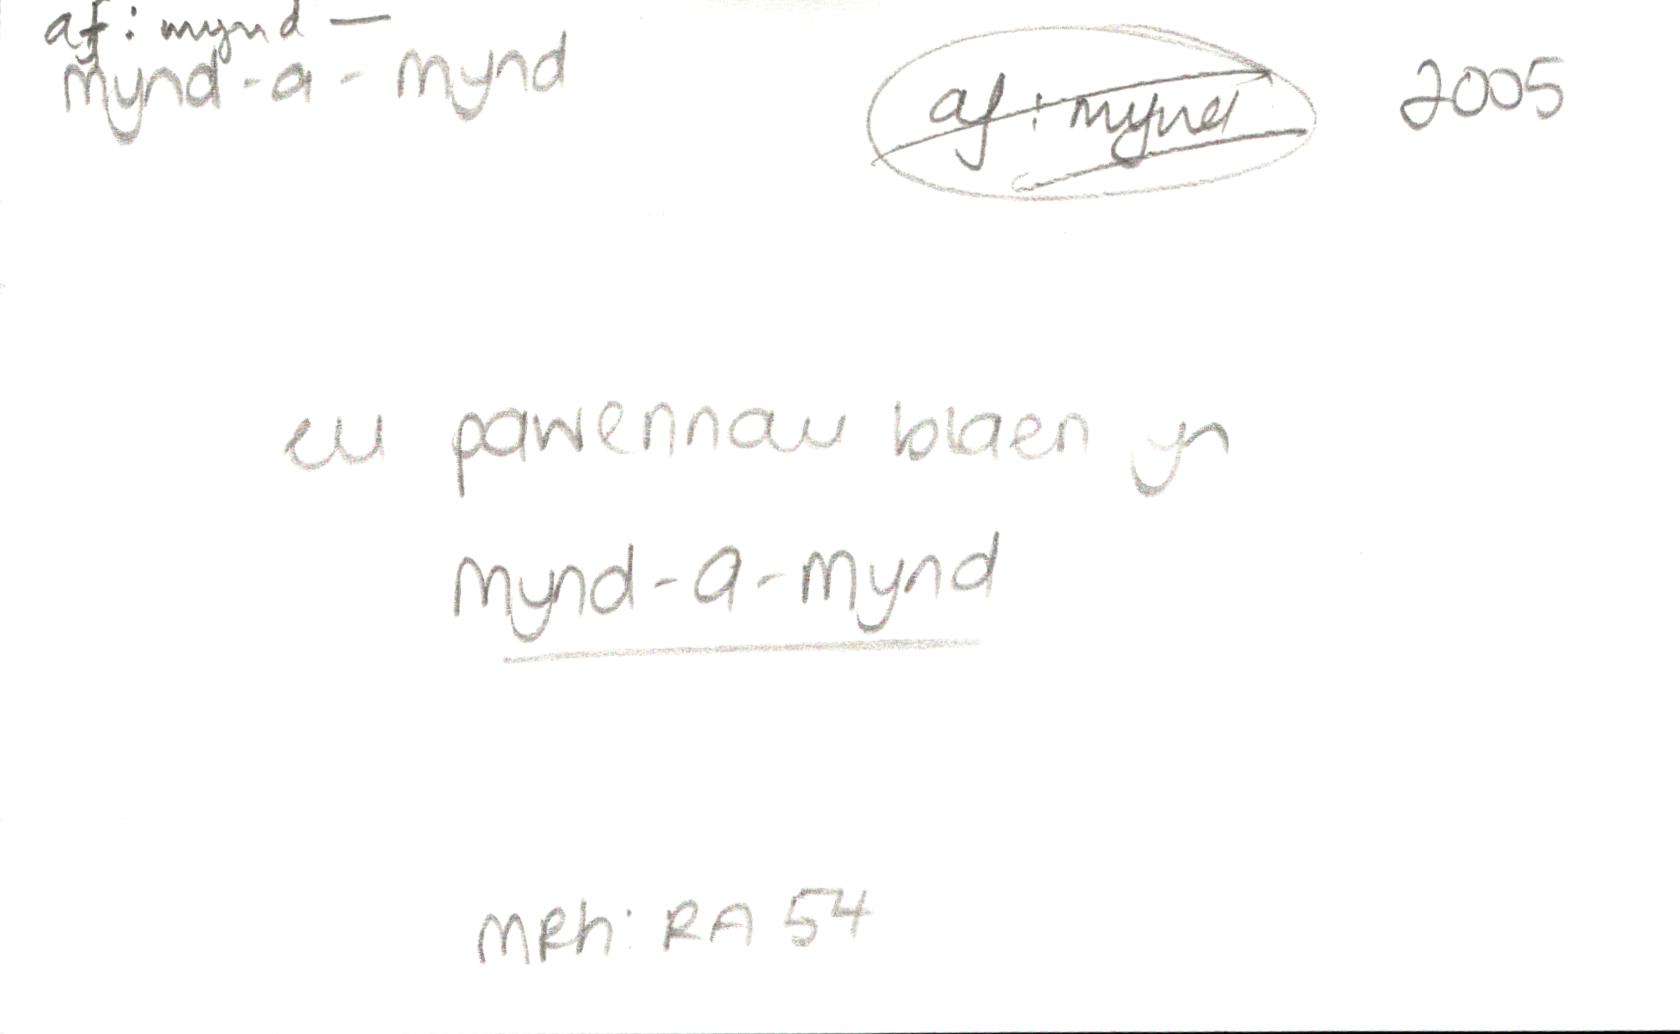 af: mynd —
mynd-a-mynd
af: mynd
2005
eu pawennau blaen yn
mynd-a-mynd
MRh: RA 54